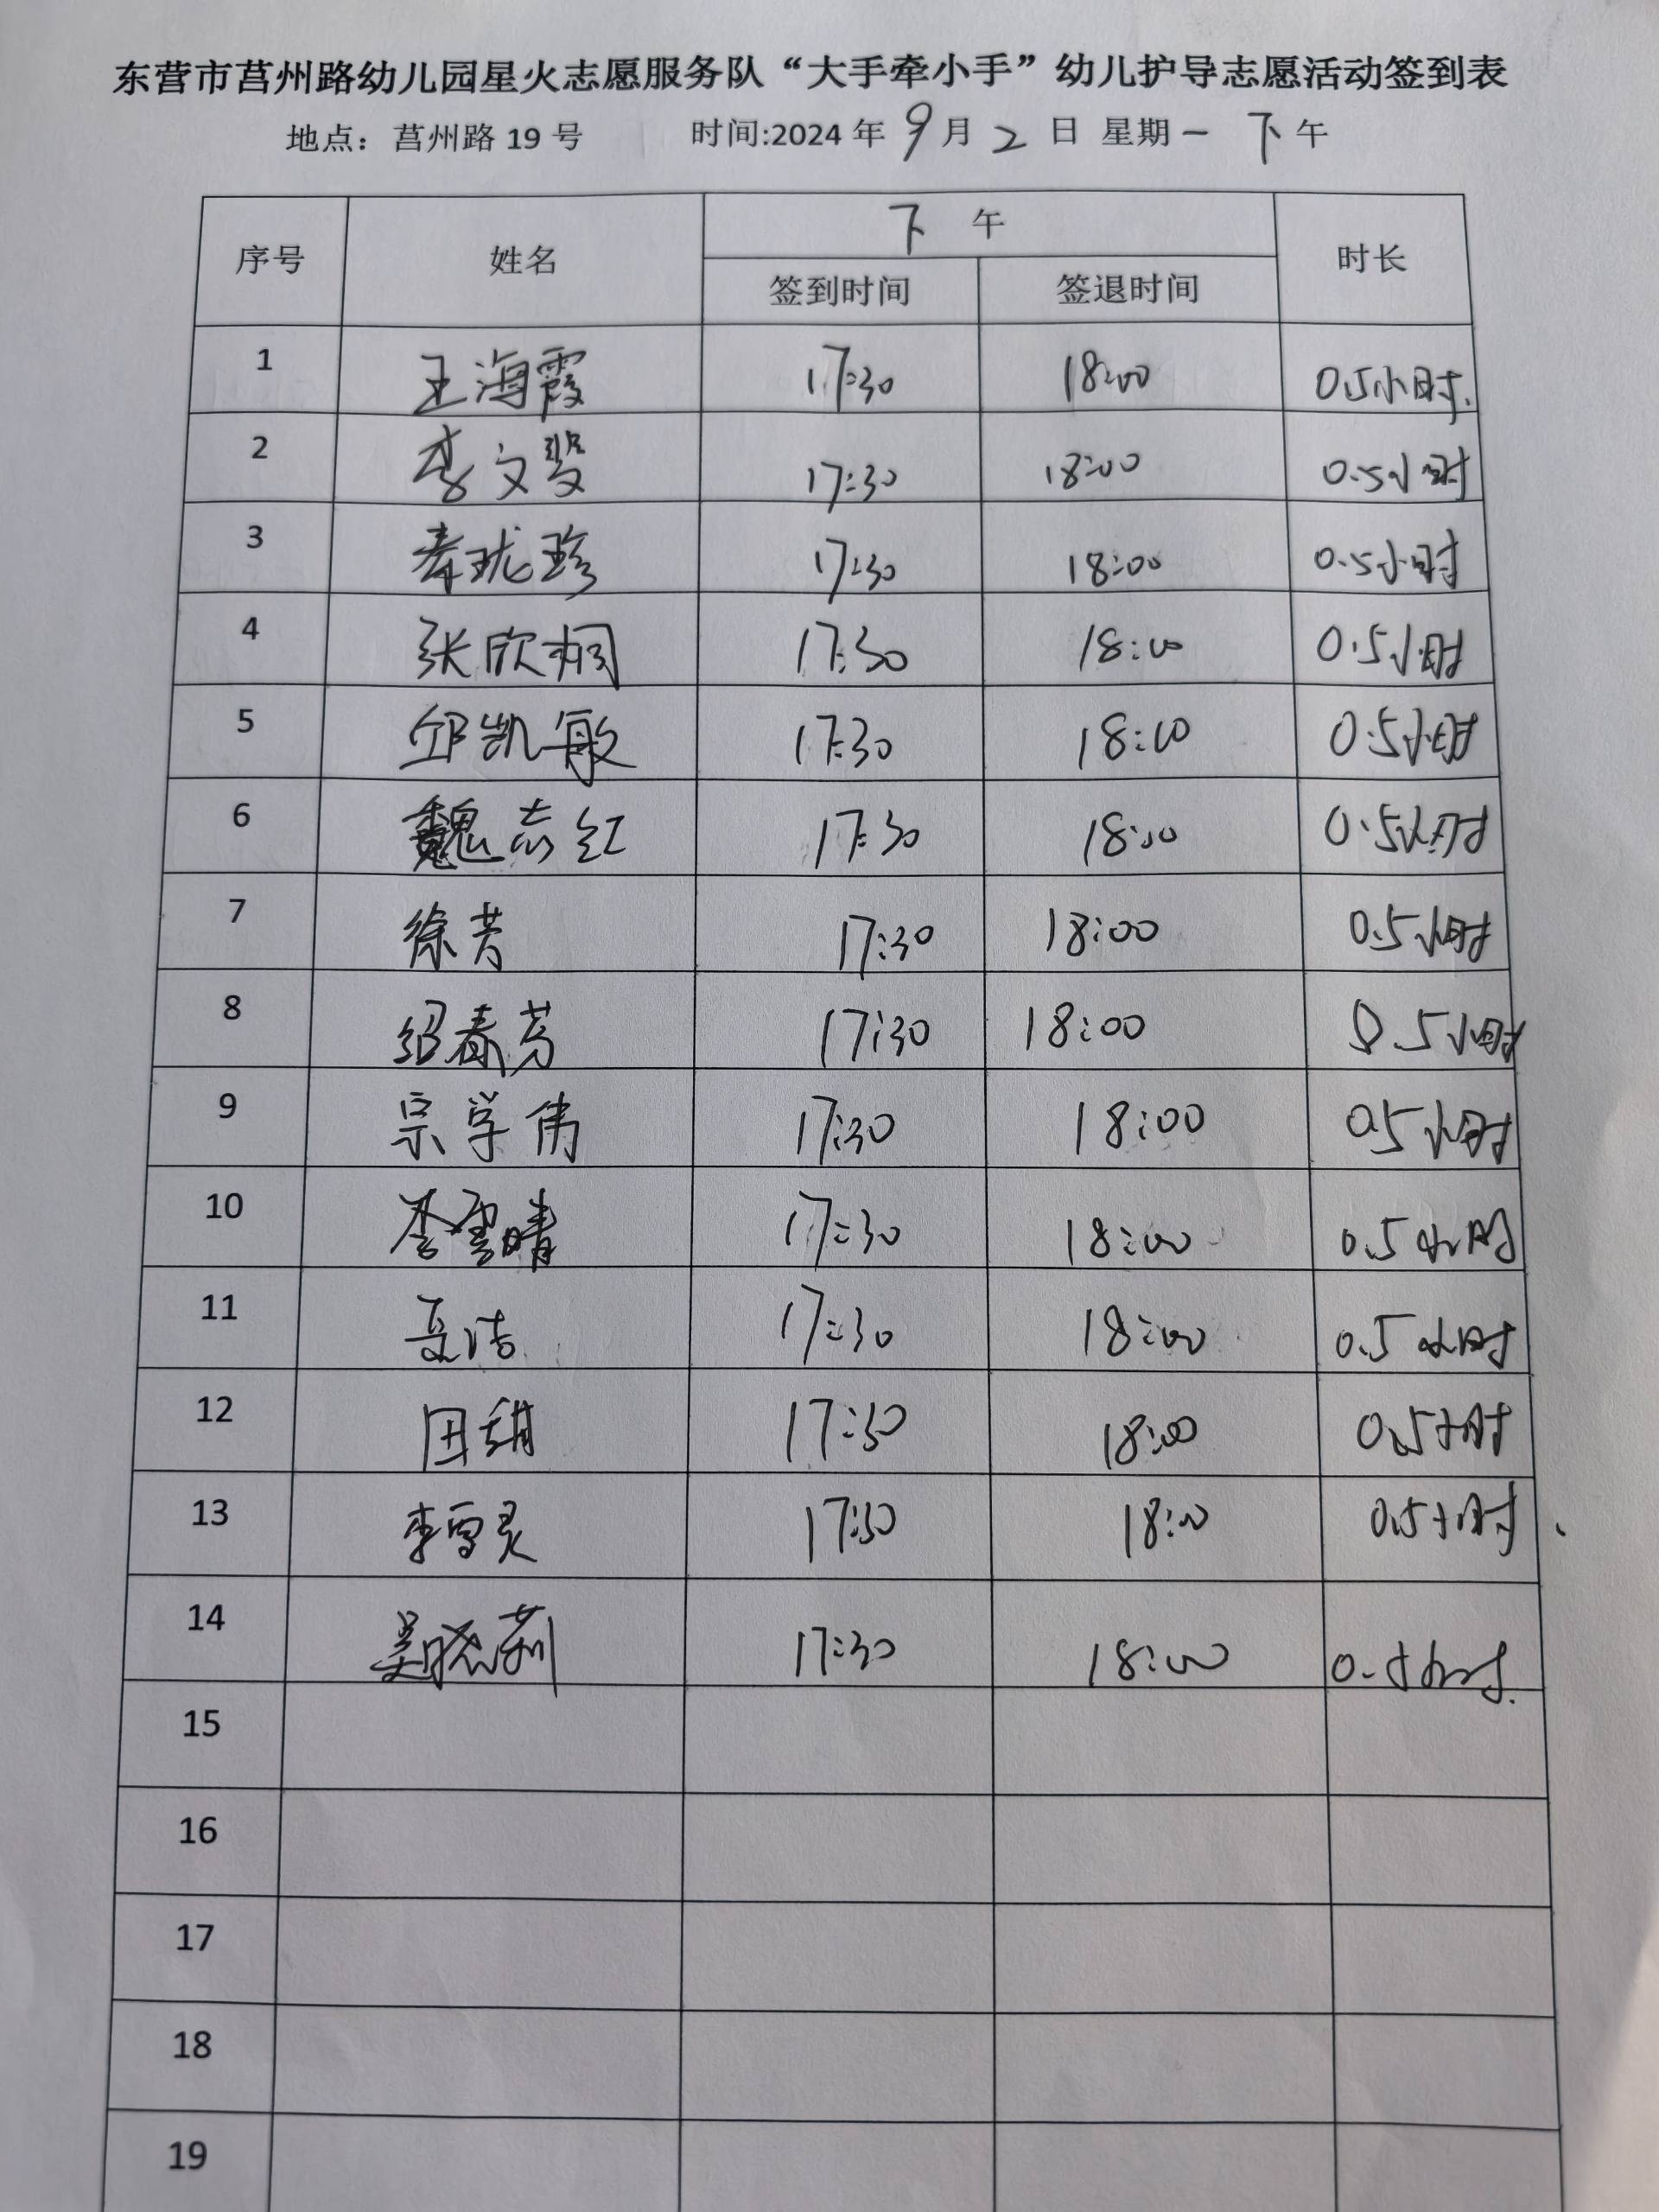 东营市莒州路幼儿园星火志愿服务队“大手牵小手”幼儿护导志愿活动签到表
地点：莒州路 19 号 时间:2024 年 9 月 2 日 星期一 下午
序号 姓名 下 午 时长
签到时间 签退时间
1 王海霞 17:30 18:00 0.5小时.
2 李文翠 17:30 18:00 0.5小时
3 秦珑珍 17:30 18:00 0.5小时
4 张欣桐 17:30 18:00 0.5小时
5 邱凯敏 17:30 18:00 0.5小时
6 魏志红 17:30 18:00 0.5小时
7 徐芳 17:30 18:00 0.5小时
8 春芳 17:30 18:00 0.5小时
9 宗学伟 17:30 18:00 0.5小时
10 李雪晴 17:30 18:00 0.5小时
11 夏洁 17:30 18:00 0.5小时
12 田甜 17:30 18:00 0.5小时
13 李雪灵 17:30 18:00 0.5小时
14 吴晓莉 17:30 18:00 0.5小时.
15
16
17
18
19